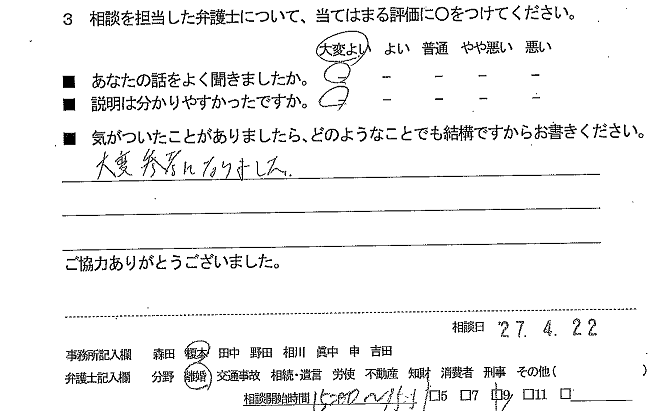 3 相談を担当した弁護士について、当てはまる評価に○をつけてください。
大変よい よい 普通 やや悪い 悪い
■ あなたの話をよく聞きましたか。 － － － － －
■ 説明は分かりやすかったですか。 － － － － －
■ 気がついたことがありましたら、どのようなことでも結構ですからお書きください。
大変参考になりました。
ご協力ありがとうございました。
相談日 27.4.22
事務所記入欄 森田 榎本 田中 野田 相川 眞中 申 吉田
弁護士記入欄 分野 離婚 交通事故 相続・遺言 労使 不動産 知財 消費者 刑事 その他( )
相談開始時間 □5 □7 □9 □11 □